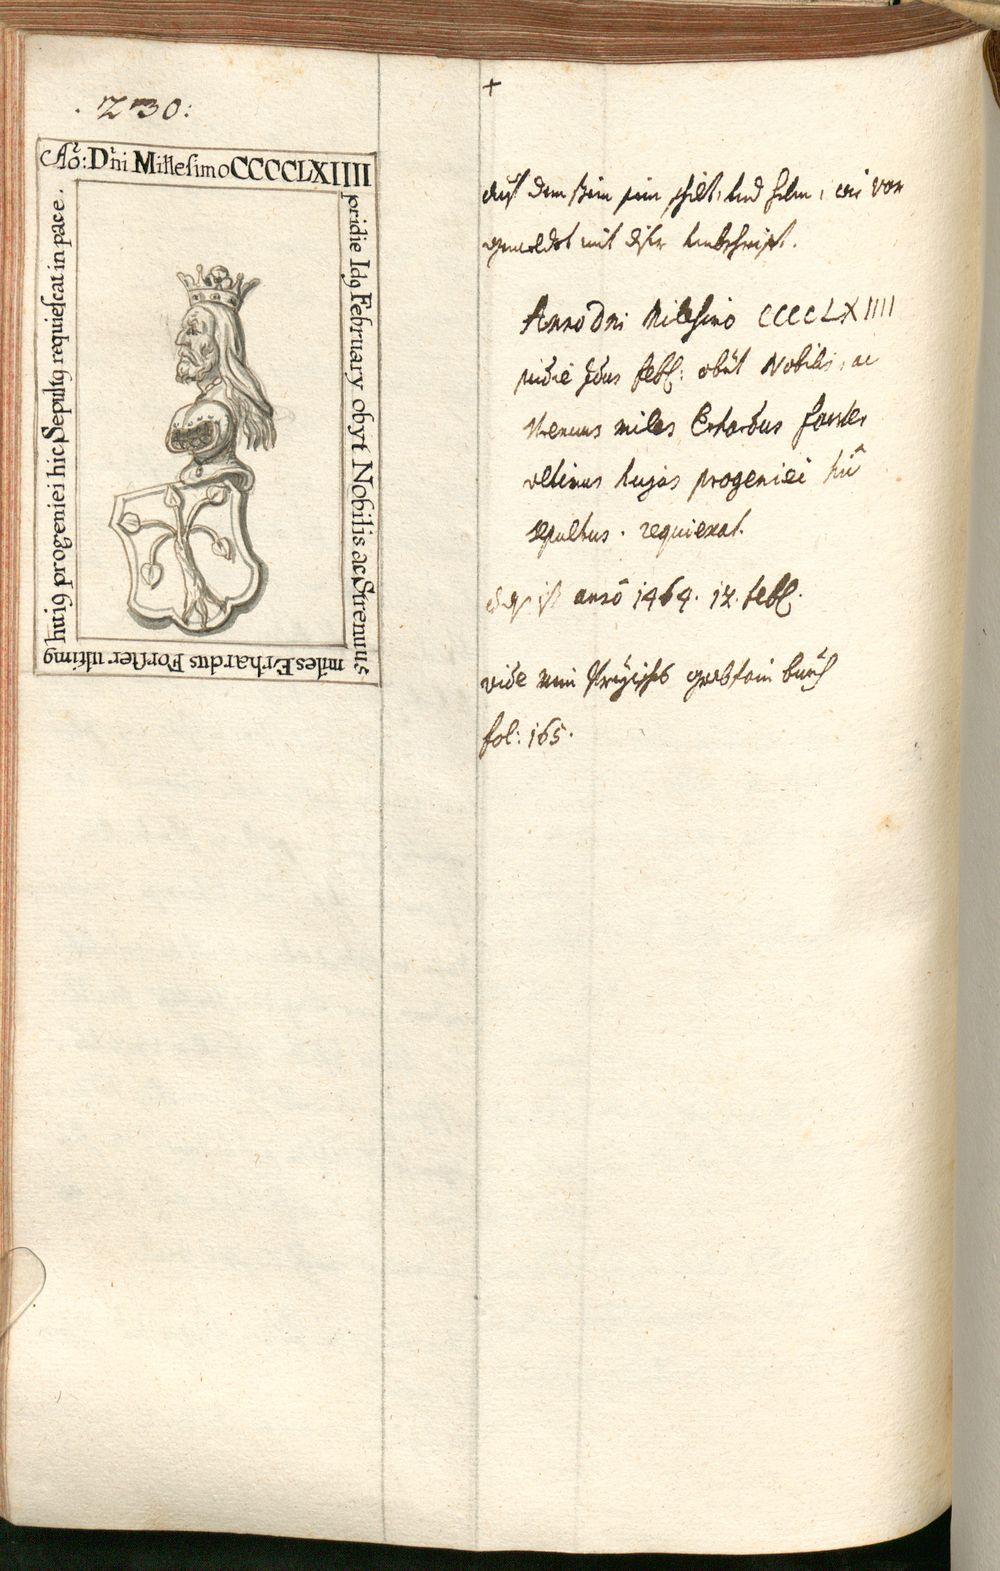 . 230:
Aõ: Dñi Millesimo CCCCLXIIII
pridie Idq February obyt Nobilis ac Strenuus
miles Erhardus Forster ultimq
huiq progeniei hic Sepultq requiescat in pace.
+
auf dem stein sein schilt, und helm, wie vor
gemeldet mit diser umbschrift.
Anno Dni Milesimo CCCCLXIIII
pridie Idus feb: obÿt Nobilis, ac
strenuus miles Erhardus forster
ultimus hujus progeniei hic
sepultus. requiescat.
das ist anno 1464. 12. feb.
vide mein grabstain buech
fol: 165.